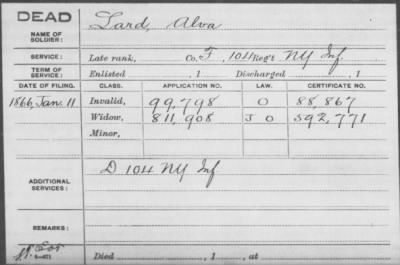 DEAD
NAME OF SOLDIER: Lard, Alva
SERVICE: Late rank, Co. F, 104 Reg't NY Inf.
TERM OF SERVICE: Enlisted , 1 Discharged , 1
DATE OF FILING. CLASS. APPLICATION NO. LAW. CERTIFICATE NO.
1866, Jan. 11 Invalid, 99,798 O 88,867
Widow, 811,908 J O 592,771
Minor,
ADDITIONAL SERVICES: D 104 NY Inf
REMARKS:
Died , 1 , at